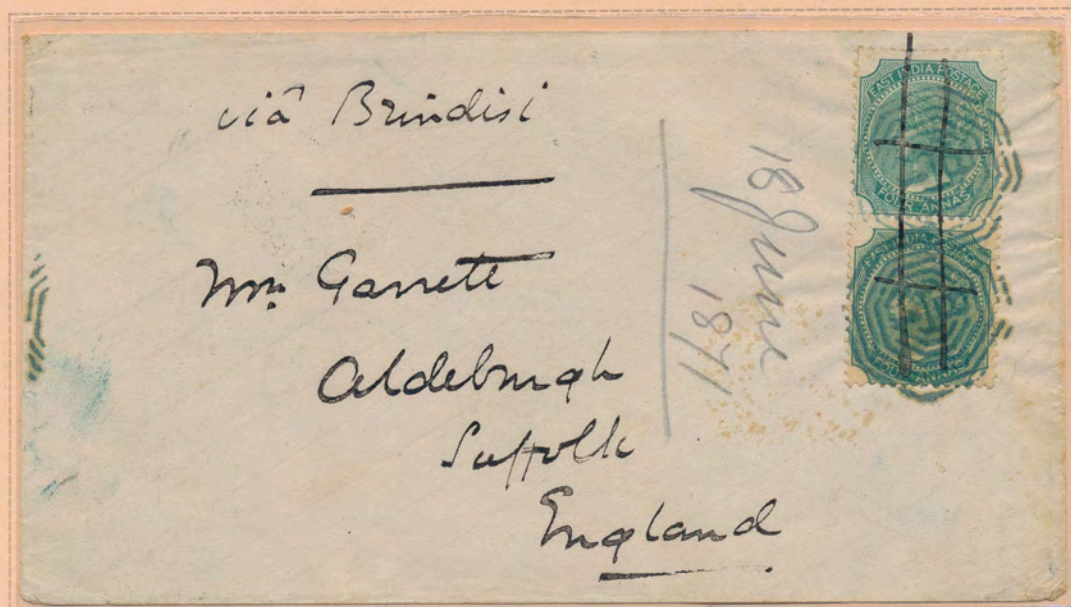 viâ Brindisi
Mrs. Garrett
Aldeburgh
Suffolk
England
18 June
1871
EAST INDIA POSTAGE
FOUR ANNAS
EAST INDIA POSTAGE
FOUR ANNAS